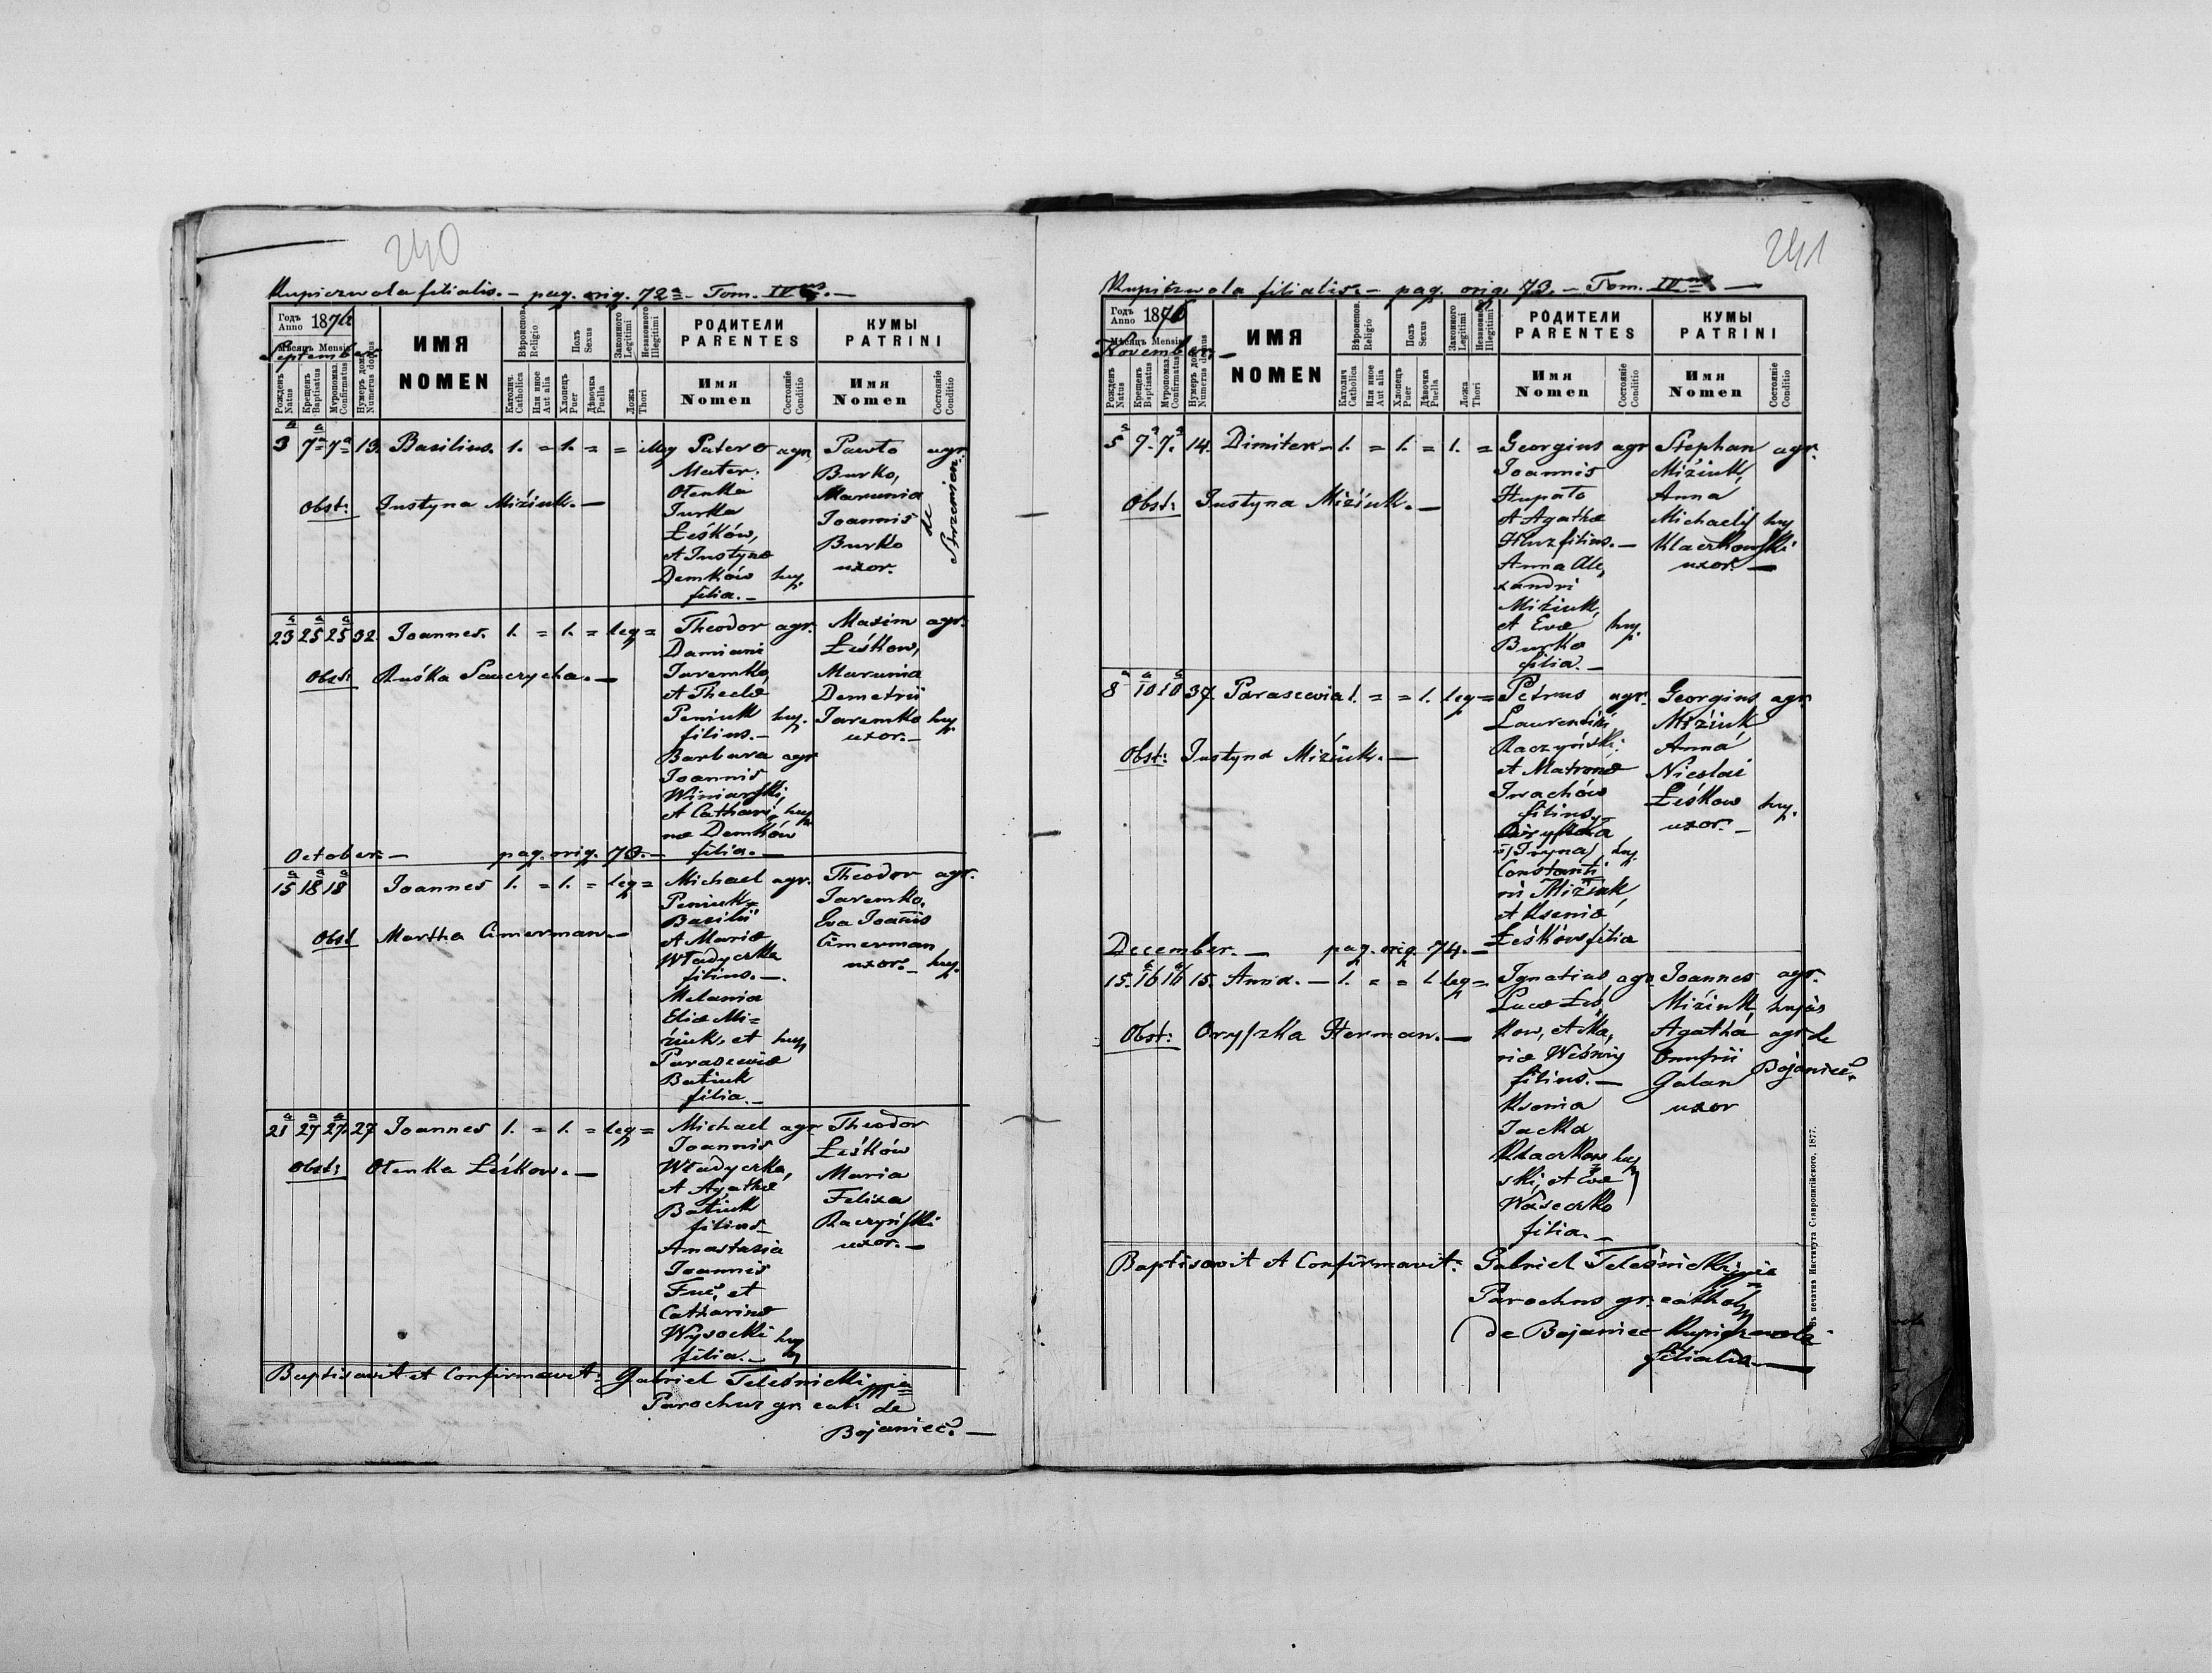 240
Kupiczwola filialis. – pag. orig. 72a – Tom. IVus. –
Годъ Anno 1876
Мѣсяцъ Mensis
September
Рожденъ Natus
Крещенъ Baptisatus
Мѵропомаз. Confirmatus
Нумеръ дома Numerus domus
ИМЯ
NOMEN
Вѣроиспов. Religio
Католич. Catholica
Или иное Aut alia
Полъ Sexus
Хлопецъ Puer
Дѣвочка Puella
Законного Legitimi
Незаконного Illegitimi
Ложа Thori
РОДИТЕЛИ
PARENTES
Имя
Nomen
Состояніе Conditio
КУМЫ
PATRINI
Имя
Nomen
Состояніе Conditio
3 7 7 13. Basilius. 1. = 1. = = illeg Pater 0 agr. Pawło agr.
Mater: Burko,
Ołenka Marunia
Obst: Justyna Miziuk. –
Jurka Joannis
Leśków, Burko
et Justynæ uxor.
Demków huj.
filia. –
de Strzemien
23 25 25 32 Joannes. 1. = 1. = leg = Theodor agr. Maxim agr.
Damiani Leśkow,
Jaremko, Marunia
Obst: Ruśka Sauczycha. –
et Theclæ Demetrii
Peniuk huj. Jaremko huj.
filius. – uxor. –
Barbara agr
Joannis
Winiarski,
et Cathari- huj
næ Demków
filia. –
October. – pag. orig. 73. –
15 18 18 Joannes 1. = 1. = leg = Michael agr. Theodor agr.
Peniuk = Jaremko,
Basilii Eva Joannis
Obst Martha Cimerman. –
et Mariæ Cimerman
Władyczka uxor. – huj.
filius. –
Melania
Eliæ Mi=
ziuk, et huj
Parasceviæ
Batiuk
filia. –
21 27 27. 27 Joannes 1. = 1. = leg = Michael agr Theodor
Joannis Leśków
Obst: Ołenka Leśkow. –
Władyczka, Maria
et Agathæ Felixa
Batiuk Raczyński
filius – uxor. –
Anastasia
Joannis
Fuć, et
Catharinæ
Wysocki huj
filia. –
Baptisavit et Confirmavit: Gabriel Teleśnicki mpria
Parochus gr. cat. de
Bojaniec. –
241
Kupiczwola filialis. – pag. orig. 73. – Tom. IVus. –
Годъ Anno 1876
Мѣсяцъ Mensis
November. –
Рожденъ Natus
Крещенъ Baptisatus
Мѵропомаз. Confirmatus
Нумеръ дома Numerus domus
ИМЯ
NOMEN
Вѣроиспов. Religio
Католич. Catholica
Или иное Aut alia
Полъ Sexus
Хлопецъ Puer
Дѣвочка Puella
Законного Legitimi
Незаконного Illegitimi
Ложа Thori
РОДИТЕЛИ
PARENTES
Имя
Nomen
Состояніе Conditio
КУМЫ
PATRINI
Имя
Nomen
Состояніе Conditio
5 7. 7. 14. Dimiter – 1. = 1. = 1. = Georgius agr Stephan agr.
Joannis Miziuk,
Hupało Anna
Obst: Justyna Miziuk. –
et Agathæ Michaelis huj
filius. – Klaczkowski
Anna Ale, uxor. –
xandri
Miziuk,
et Evæ huj.
Burko
filia. –
8 10 10 37. Parascevia 1. = = 1. leg = Petrus agr. Georgius agr.
Miziuk
Obst: Justyna Miziuk. –
Raczyński: Anna
et Matronæ Nicolai
Iwachów Leśkow huj.
filius, uxor. –
Oryszka
(Iryna) huj.
Constanti
ni Miziuk,
et Kseniæ
Leśków filia
December. – pag. orig. 74. –
15. 16 16 15. Anna. – 1. = = 1. leg = Ignatius agr. Joannes agr.
Lucæ Leś, Miziuk hujus
Obst: Oryszka Herman. –
kow, et Ma, Agatha agr. de
riæ Onufrii Bojaniec.
filius. – Galan
Ksenia uxor
Jacka
Klaczkow huj
ski, et Evæ
Waseczko
filia. –
Baptisavit et Confirmavit: Gabriel Teleśnicki mpria
Parochus gr. cathol.
de Bojaniec Kupiczwola
filialis. –
печатнѣ Института Ставропигійского. 1877.